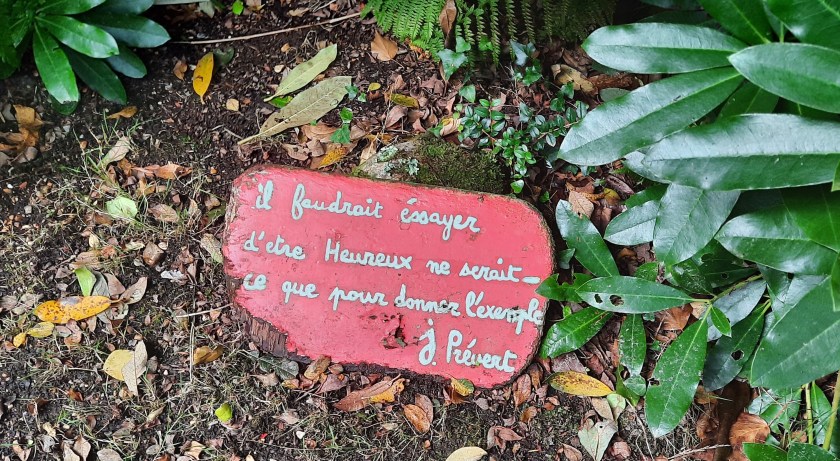 il faudrait éssayer
d'etre Heureux ne serait-
ce que pour donner l'exemple
J Prévert